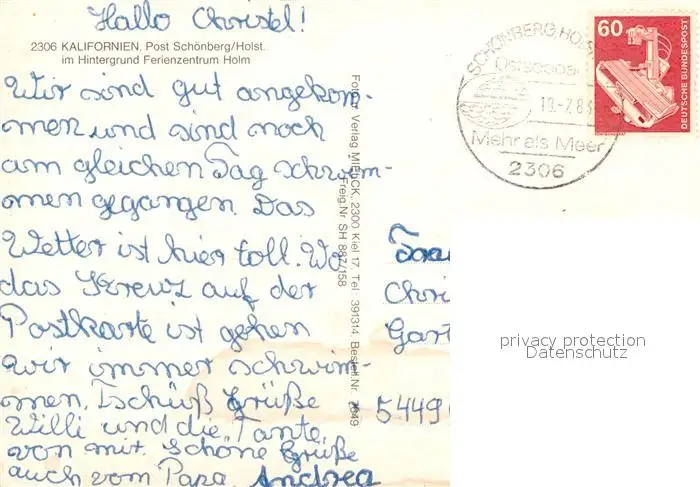 Hallo Christel!
2306 KALIFORNIEN, Post Schönberg/Holst.
im Hintergrund Ferienzentrum Holm
Wir sind gut angekom-
men und sind noch
am gleichen Tag schwim-
men gegangen. Das
Wetter ist hier toll. Wo
das Kreuz auf der
Postkarte ist gehen
wir immer schwim-
men. Tschüß Grüße
Willi und die "Tante"
von mir. Schöne Grüße
auch vom Papa. Andrea
Foto u. Verlag MIELCK, 2300 Kiel 17, Tel. 391314 Bestell Nr. 7649
Freig. Nr SH 887/158
SCHÖNBERG, HOLST
Ostseebad
10.-7.83
Mehr als Meer
2306
60
DEUTSCHE BUNDESPOST
Chri
Gart
5449
privacy protection
Datenschutz